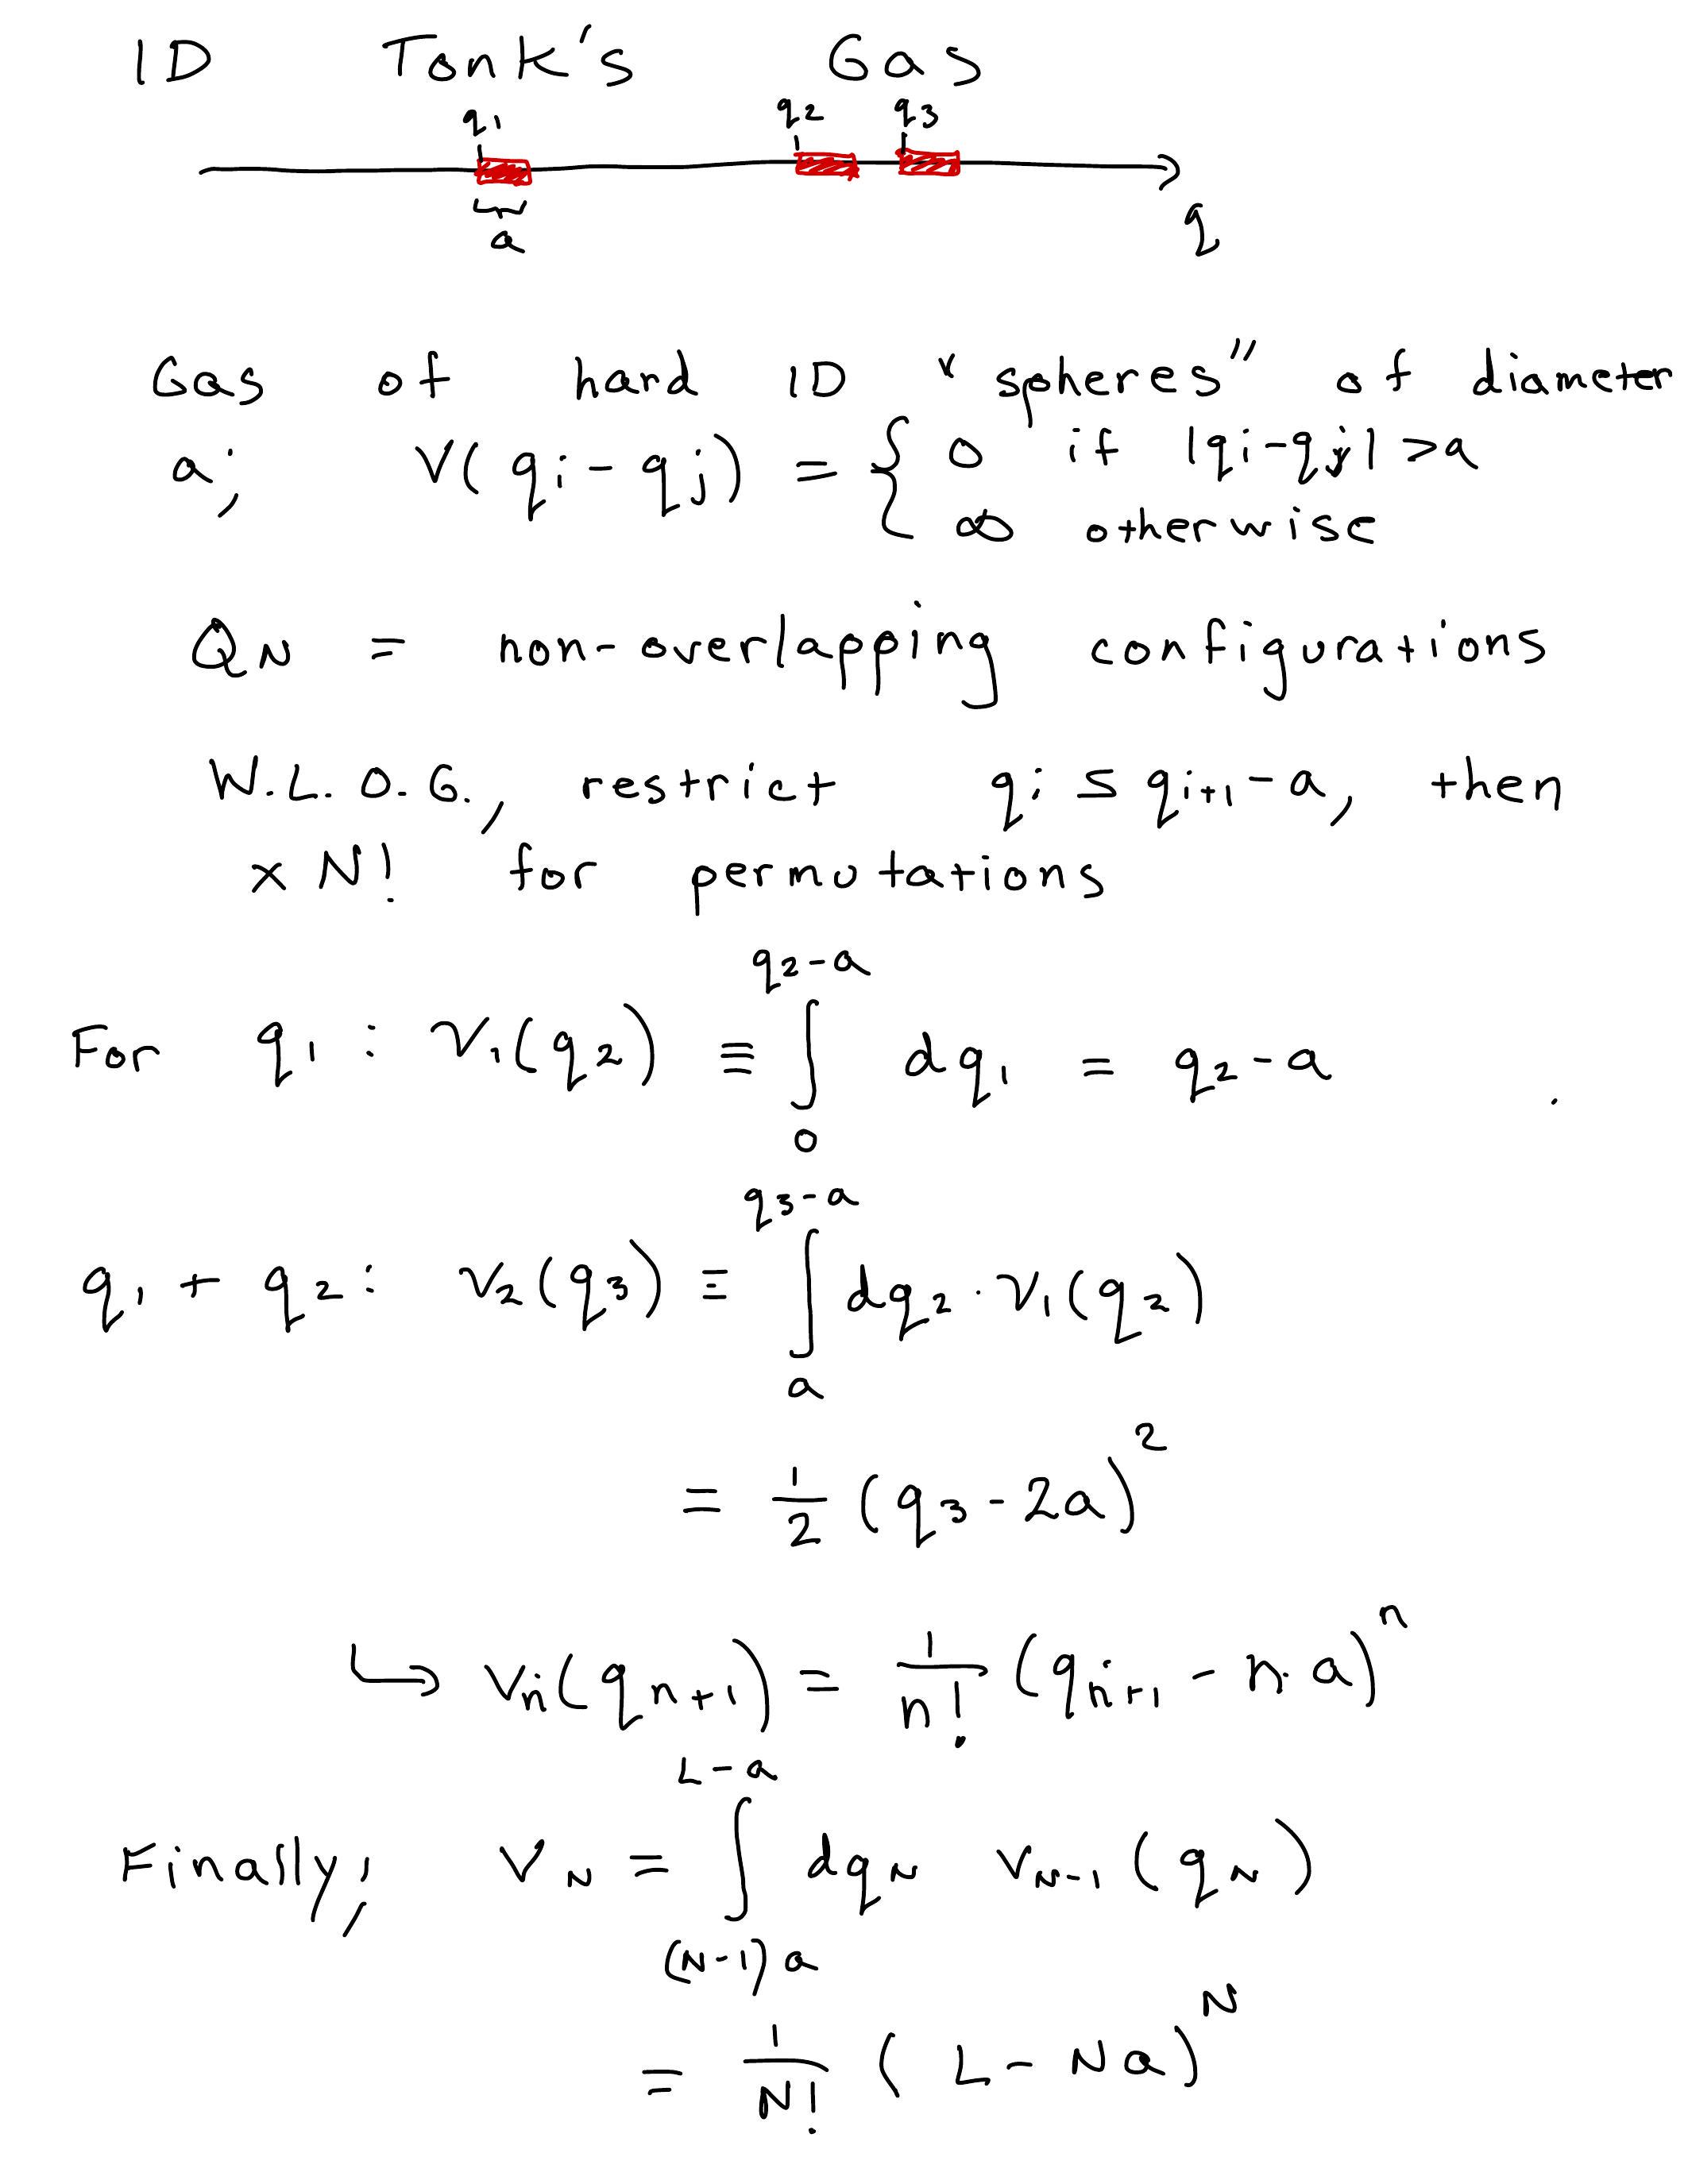 1D Tonk's Gas
q1 q2 q3
a
q
Gas of hard 1D "spheres" of diameter
a; V(qi - qj) = { 0 if |qi-qj| > a
∞ otherwise
QN = non-overlapping configurations
W.L.O.G., restrict qi ≤ qi+1 - a, then
x N! for permutations
q2-a
For q1 : V1(q2) ≡ ∫ dq1 = q2-a
0
q3-a
q1 + q2: V2(q3) ≡ ∫ dq2 · V1(q2)
a
= 1/2 (q3 - 2a)^2
↳ Vn(qn+1) = 1/n! (qn+1 - n·a)^n
L-a
Finally, VN = ∫ dqN VN-1 (qN)
(N-1)a
= 1/N! (L - Na)^N